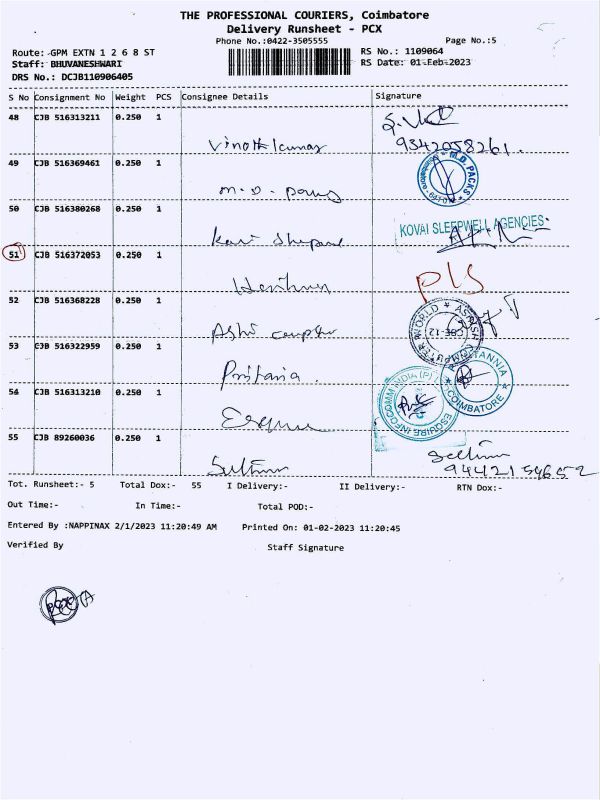 THE PROFESSIONAL COURIERS, Coimbatore
Delivery Runsheet - PCX
Phone No.:0422-3505555
Page No.:5
Route: GPM EXTN 1 2 6 8 ST
RS No.: 1109064
Staff: BHUVANESHWARI
RS Date: 01-Feb-2023
DRS No.: DCJB110906405
S No Consignment No Weight PCS Consignee Details Signature
48 CJB 516313211 0.250 1
Vinothkumar 9342058261.
49 CJB 516369461 0.250 1
M.D. PACKS
M.D. Packs
50 CJB 516380268 0.250 1
KOVAI SLEEPWELL AGENCIES
51 CJB 516372053 0.250 1
52 CJB 516368228 0.250 1
ASHISH COMPUTER WORLD CBE-12
53 CJB 516322959 0.250 1
BRITANNIA COIMBATORE
54 CJB 516313210 0.250 1
ESQUIRE INFOCOMM INDIA (P)
Esquire
55 CJB 89260036 0.250 1
9442154652
Tot. Runsheet:- 5 Total Dox:- 55 I Delivery:- II Delivery:- RTN Dox:-
Out Time:- In Time:- Total POD:-
Entered By :NAPPINAX 2/1/2023 11:20:49 AM Printed On: 01-02-2023 11:20:45
Verified By Staff Signature